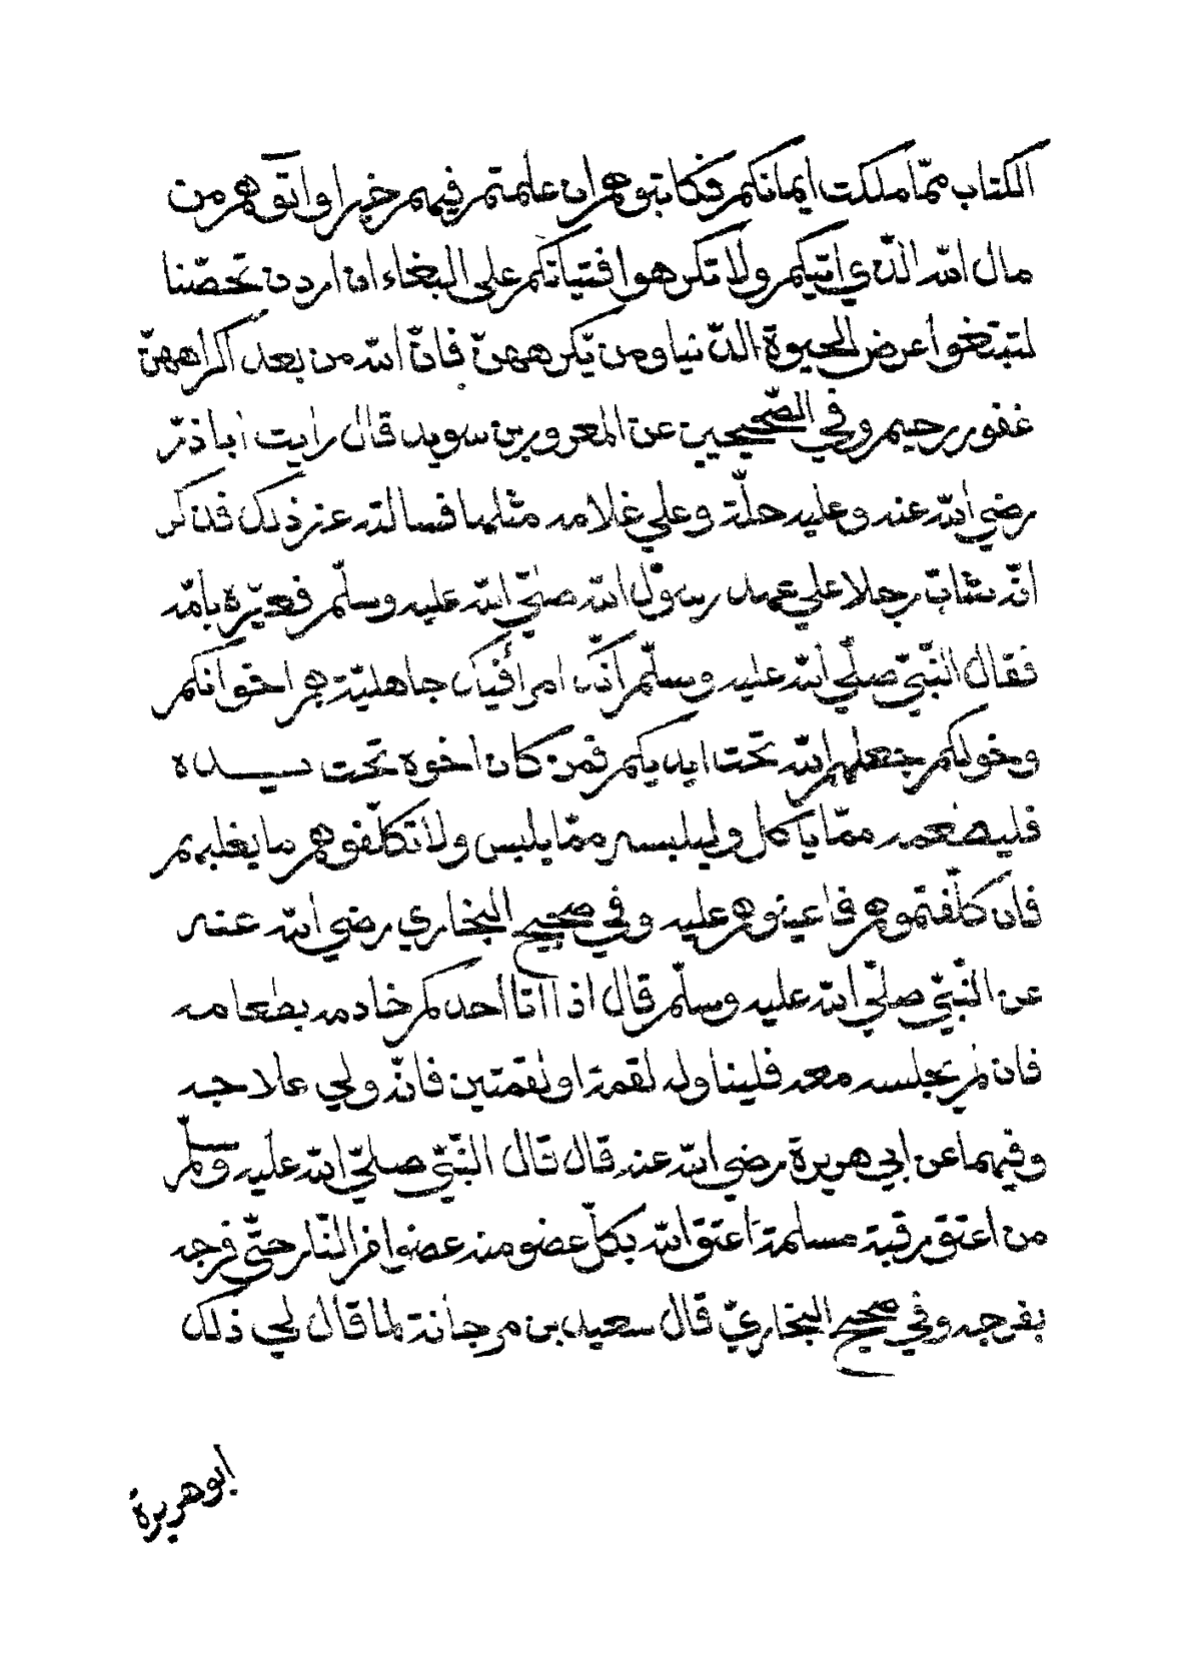 الكتاب ممّا ملكت ايمانكم فكاتبوهم ان علمتم فيهم خيرا واٰتوهم من
مال الله الذي اتيكم ولا تكرهوا فتياتكم على البغاء ان اردن تحصّنا
لتبتغوا عرض الحيوة الدّنيا ومن يّكرههنّ فانّ الله من بعد اكراههنّ
غفور رحيم وفي الصّحيحين عن المعرور بن سويد قال رايت اباذرّ
رضي الله عنه وعليه حلّة وعلي غلامه مثلها فسالته عن ذلك فذكر
انّه شابّ رجلا علي عهد رسول الله صلّي الله عليه وسلّم فعيّره بامّه
فقال النّبيّ صلّي الله عليه وسلّم انّك امرأ فيك جاهليّة هم اخوانكم
وخولكم جعلهم الله تحت ايديكم فمن كان اخوه تحت يـــده
فليطعمه ممّا يأكل وليلبسه ممّا يلبس ولا تكلّفوهم ما يغلبهم
فان كلّفتموهم فاعينوهم عليه وفي صحيح البخاري رضي الله عنه
عن النّبيّ صلّي الله عليه وسلّم قال اذا اتا احدكم خادمه بطعامه
فان لم يجلسه معه فليناوله لقمة او لقمتين فانّه ولي علاجه
وفيهما عن ابي هريرة رضي الله عنه قال قال النّبيّ صلّي الله عليه وسلّم
من اعتق رقبة مسلمة اعتق الله بكلّ عضو منه عضوا من النّار حتّي فرجه
بفرجه وفي صحيح البخاريّ قال سعيد بن مرجانة لما قال لي ذلك
ابوهريرة